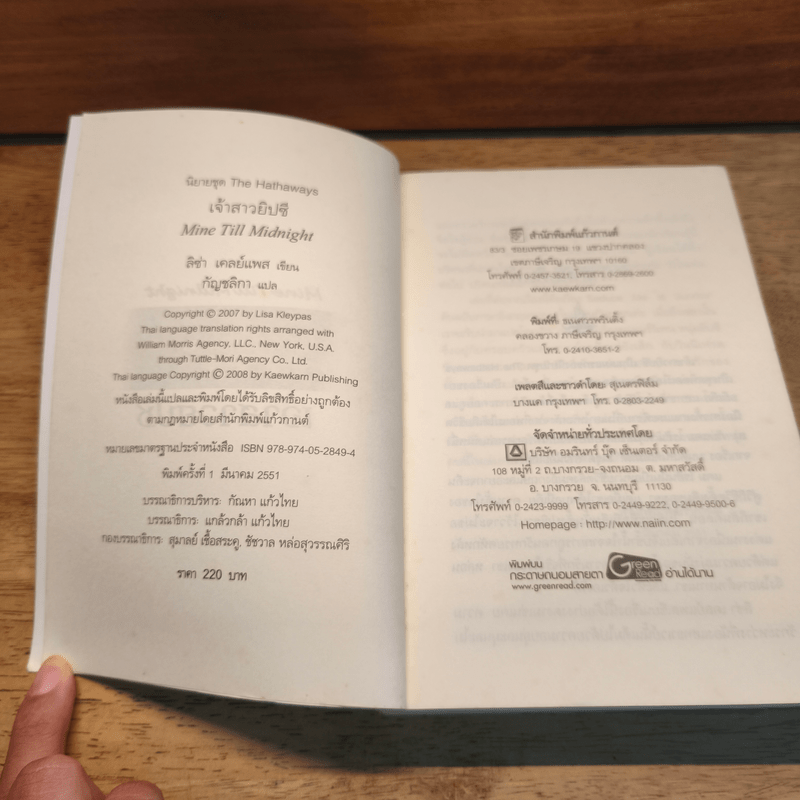 นิยายชุด The Hathaways
เจ้าสาวยิปซี
Mine Till Midnight
ลิซ่า เคลย์แพส เขียน
กัญชลิกา แปล
Copyright © 2007 by Lisa Kleypas
Thai language translation rights arranged with
William Morris Agency, LLC., New York, U.S.A.
through Tuttle-Mori Agency Co., Ltd.
Thai language Copyright © 2008 by Kaewkarn Publishing
หนังสือเล่มนี้แปลและพิมพ์โดยได้รับลิขสิทธิ์อย่างถูกต้อง
ตามกฎหมายโดยสำนักพิมพ์แก้วกานต์
หมายเลขมาตรฐานประจำหนังสือ ISBN 978-974-05-2849-4
พิมพ์ครั้งที่ 1 มีนาคม 2551
บรรณาธิการบริหาร กัณหา แก้วไทย
บรรณาธิการ แกล้วกล้า แก้วไทย
กองบรรณาธิการ สุมาลย์ เชื้อสระคู, ชัชวาล หล่อสุวรรณศิริ
ราคา 220 บาท
สำนักพิมพ์แก้วกานต์
ซอยเพชรเกษม 18 แขวงปากคลอง
เขตภาษีเจริญ กรุงเทพฯ 10160
โทรศัพท์ 0-2457-3521, โทรสาร 0-2869-2600
www.kaewkarn.com
พิมพ์ที่: ธเนศวรพริ้นติ้ง
คลองขวาง ภาษีเจริญ กรุงเทพฯ
โทร. 0-2410-3651-2
เพลตสีและขาวดำโดย: สุเนตรฟิล์ม
บางแค กรุงเทพฯ โทร. 0-2803-2249
จัดจำหน่ายทั่วประเทศโดย
บริษัท อมรินทร์ บุ๊ค เซ็นเตอร์ จำกัด
108 หมู่ที่ 2 ถ.บางกรวย-จงถนอม ต. มหาสวัสดิ์
อ. บางกรวย จ. นนทบุรี 11130
โทรศัพท์ 0-2423-9999 โทรสาร 0-2449-9222, 0-2449-9500-6
Homepage : http://www.naiin.com
พิมพ์บน
กระดาษถนอมสายตา Green Read อ่านได้นาน
www.greenread.com